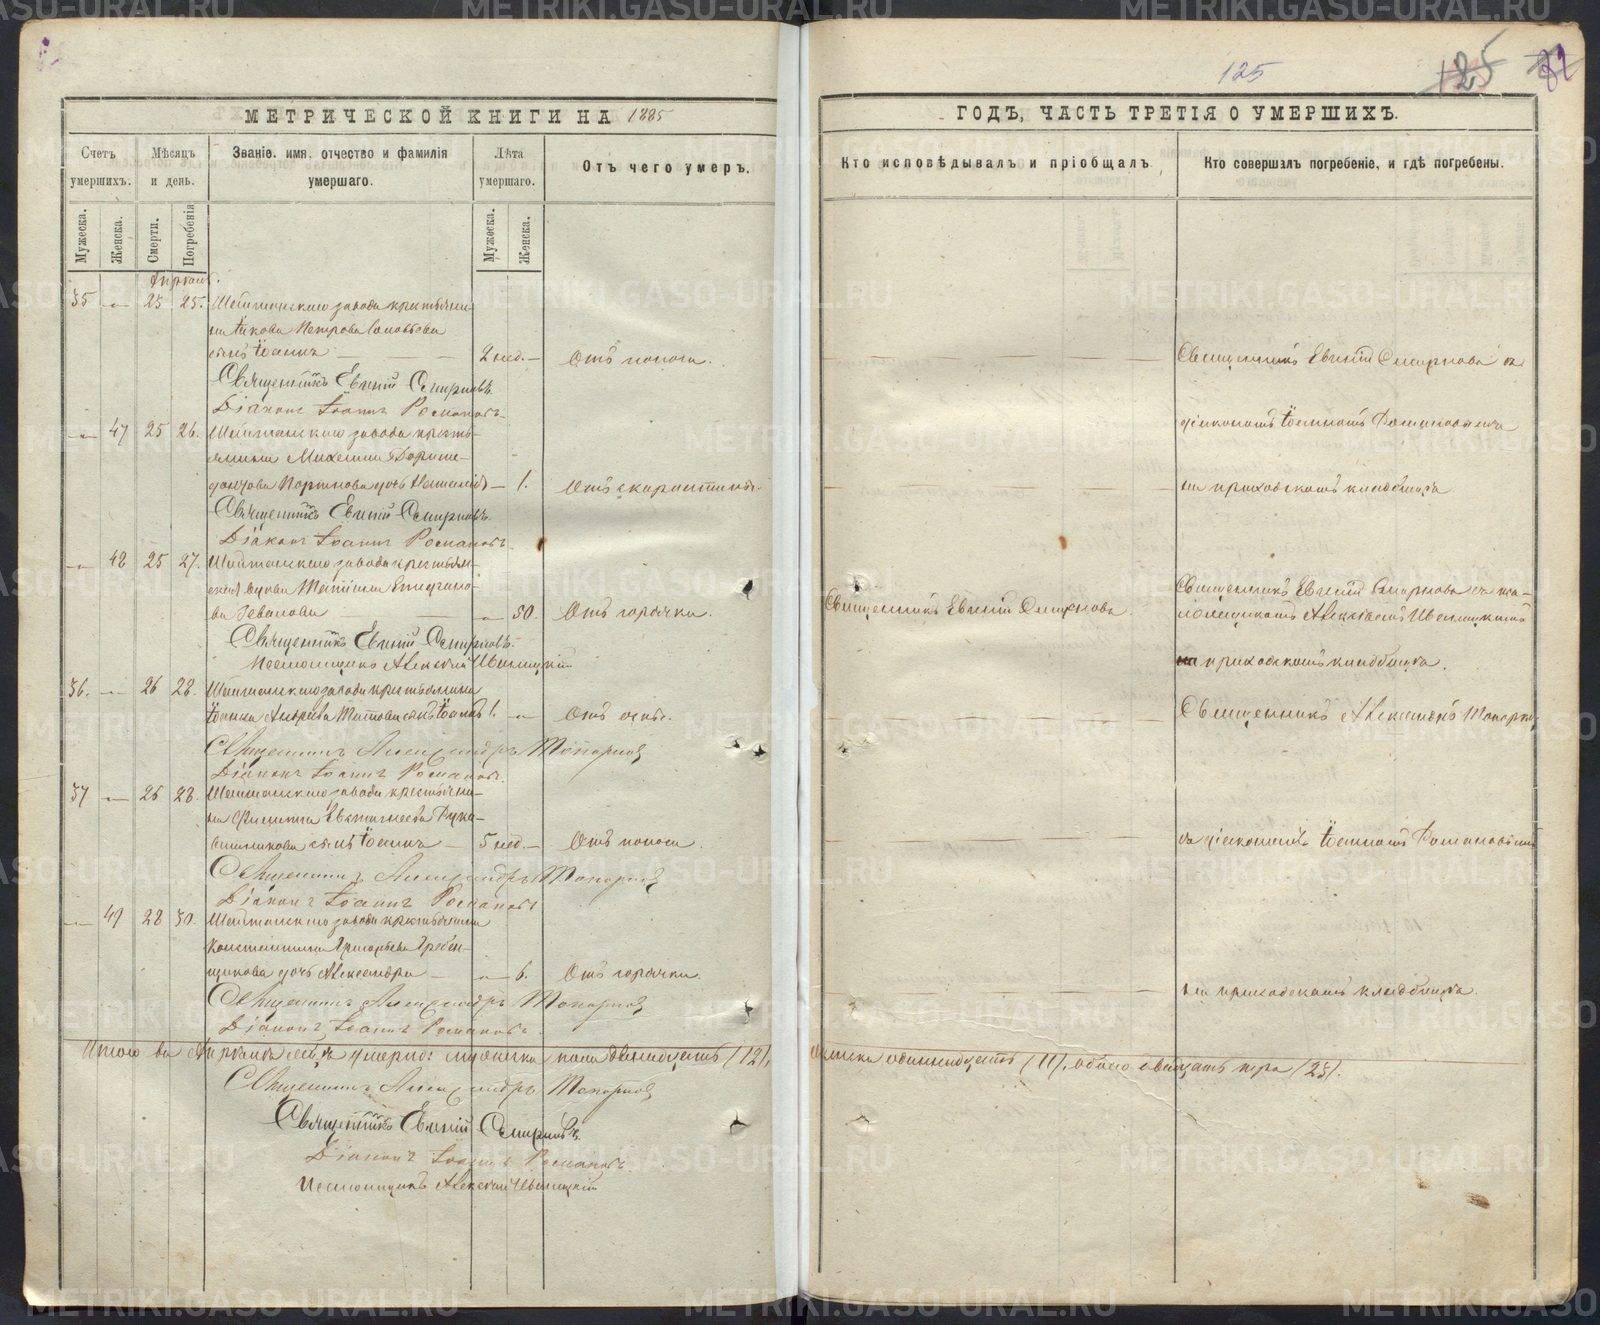 125
125
МЕТРИЧЕСКОЙ КНИГИ НА 1885
ГОДЪ, ЧАСТЬ ТРЕТІЯ О УМЕРШИХЪ.
Счетъ умершихъ.
Мѣсяцъ и день.
Званіе. имя, отчество и фамилія умершаго.
Лѣта умершаго.
Отъ чего умеръ.
Кто исповѣдывалъ и пріобщалъ
Кто совершалъ погребеніе, и гдѣ погребены.
Мужеска.
Женска.
Смерти.
Погребенія
Мужеска.
Женска.
35 — 25 25. Шайтанскаго завода крестьяни-
на Іакова Петрова Соловьева
сынъ Іоаннъ — 2 нед. — Отъ поноса.
Священникъ Евгеній Смирновъ съ
Священникъ Евгеній Смирновъ.
Діаконъ Іоаннъ Романовъ.
діакономъ Іоанномъ Романовымъ
— 47 25 26. Шайтанскаго завода кресть-
янина Михаила
дочь Наталія — 1. Отъ скарлатины.
на приходскомъ кладбищѣ
Священникъ Евгеній Смирновъ.
Діаконъ Іоаннъ Романовъ.
— 48 25 27. Шайтанскаго завода крестьян-
ская вдова
— 50. Отъ горячки.
Священникъ Евгеній Смирновъ.
Священникъ Евгеній Смирновъ съ пса-
ломщикомъ Алексѣемъ
на приходскомъ кладбищѣ.
Священникъ Евгеній Смирновъ.
Псаломщикъ Алексѣй
36. — 26 28. Шайтанскаго завода крестьянина
Іоанна Андреева сынъ Іоаннъ 1. — Отъ оспы.
Священникъ Александръ Топорко
Священникъ Александръ Топорковъ
Діаконъ Іоаннъ Романовъ.
37 — 26 28. Шайтанскаго завода крестьяни-
на Филиппа Евстигнеева Рука-
вишникова сынъ Іоаннъ — 5 нед. — Отъ поноса.
съ діакономъ Іоанномъ Романовымъ
Священникъ Александръ Топорковъ
Діаконъ Іоаннъ Романовъ
— 49 28 30. Шайтанскаго завода крестьянина
Константина Григорьева Гребен-
щикова дочь Александра — 6. Отъ горячки.
на приходскомъ кладбищѣ.
Священникъ Александръ Топорковъ
Діаконъ Іоаннъ Романовъ.
Итого въ Апрѣлѣ мѣс-цѣ умерло: мужеска пола двенадцать (12),
женска одиннадцать (11), обоего двадцать три (23).
Священникъ Александръ Топорковъ
Священникъ Евгеній Смирновъ.
Діаконъ Іоаннъ Романовъ.
Псаломщикъ Алексѣй
METRIKI.GASO-URAL.RU